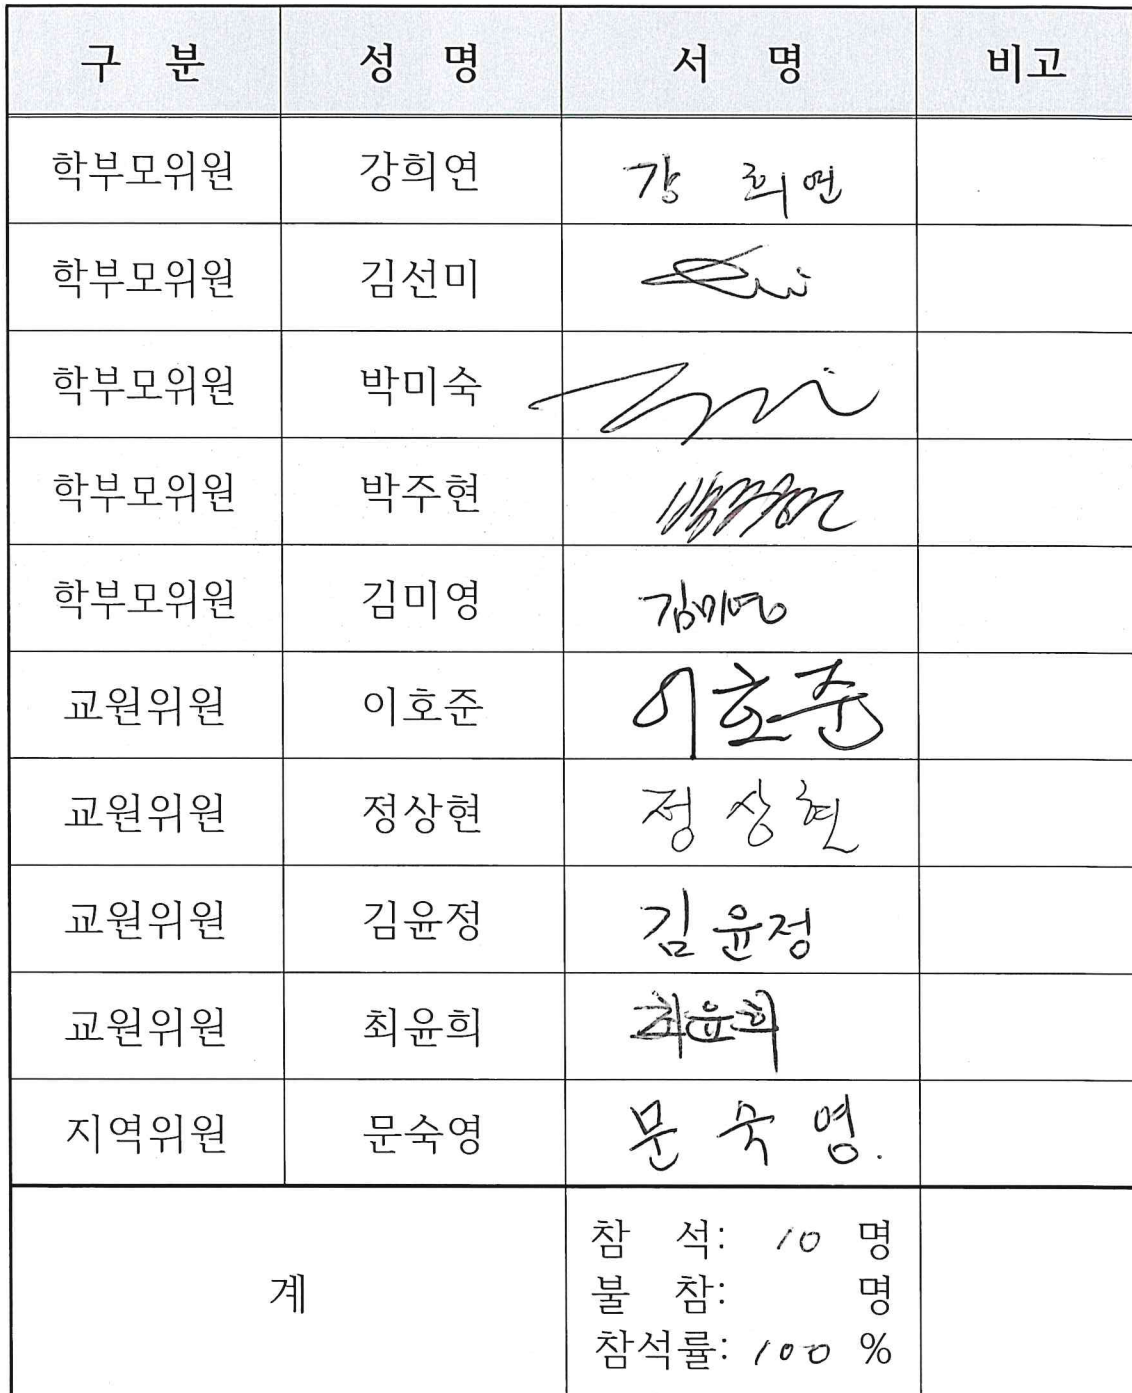 구 분 성 명 서 명 비고
학부모위원 강희연 강 희연
학부모위원 김선미
학부모위원 박미숙
학부모위원 박주현 박주현
학부모위원 김미영 김미영
교원위원 이호준 이호준
교원위원 정상현 정상현
교원위원 김윤정 김윤정
교원위원 최윤희 최윤희
지역위원 문숙영 문숙영.
참 석: 10 명
계 불 참: 명
참석률: 100 %